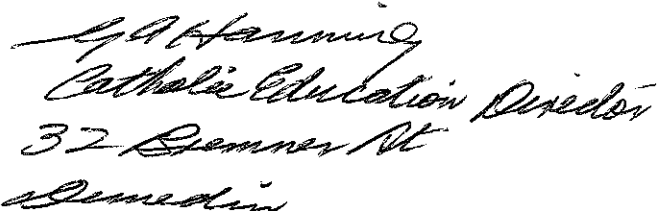 G A Hanning
Catholic Education Director
32 Bremner St
Dunedin